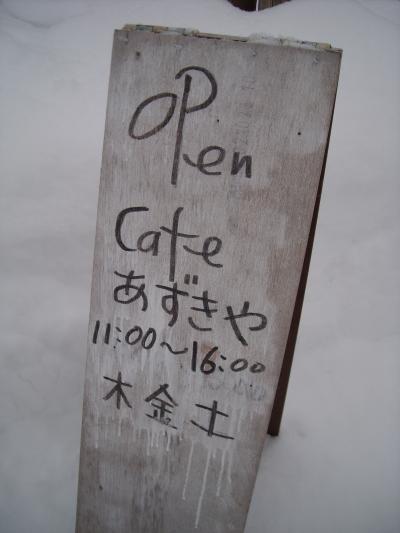 open
Cafe
あずきや
11:00～16:00
木金土